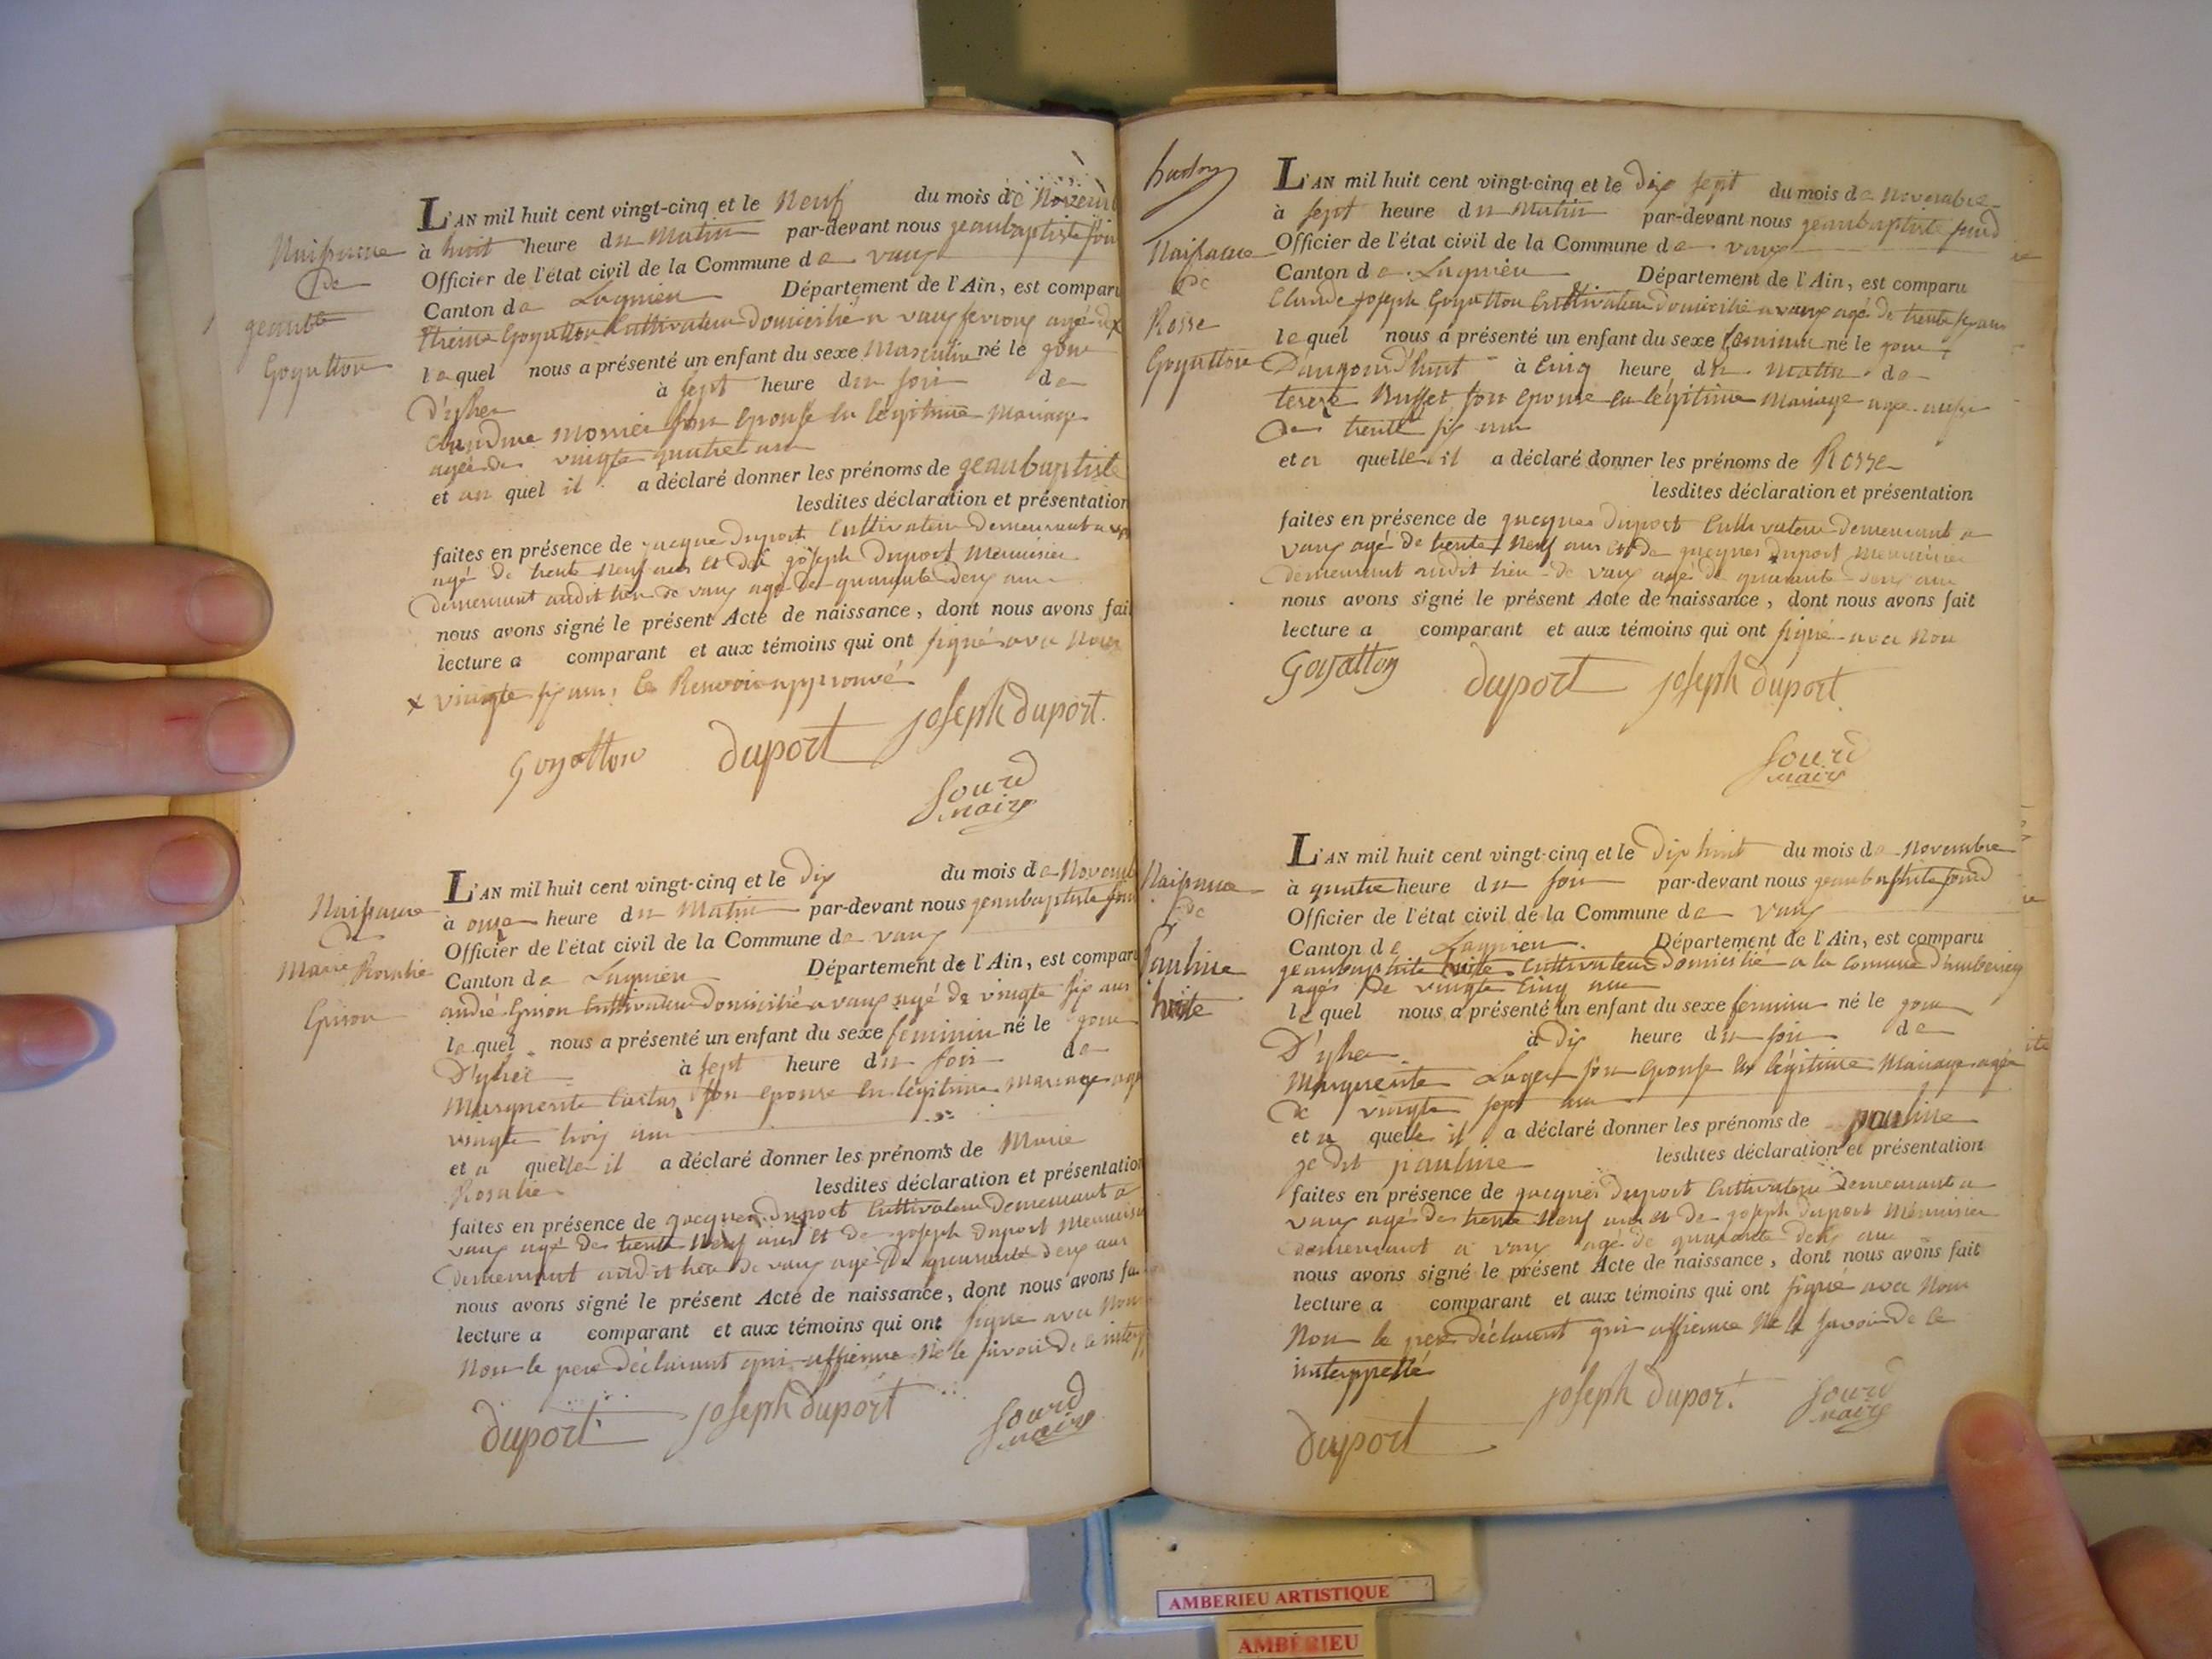 Naissance
de
geanbte
Goyatton
L'AN mil huit cent vingt-cinq et le Neuf du mois de Novembre
à huit heure du Matin par-devant nous geanbaptiste
Officier de l'état civil de la Commune de vaux
Canton de Lagnieu Département de l'Ain, est comparu
Goyatton Cultivateur domicilié a vaux agé de x
lequel nous a présenté un enfant du sexe Masculin né le gour
D'yher à sept heure du soir de
Claudine Monier son epouse en légitime Mariage
agée de vingte quatre ans
et au quel il a déclaré donner les prénoms de geanbaptiste
lesdites déclaration et présentation
faites en présence de jacque duport Cultivateur demeurant a
agé de trente neuf ans et de joseph duport Menuisier
demeurant audit lieu de vaux agé de quarante deux ans
nous avons signé le présent Acte de naissance, dont nous avons fait
lecture a comparant et aux témoins qui ont signé avec Nous
x vingte six ans, le Renvoi approuvé
Goyatton duport joseph duport
Sourd
maire
Naissance
de
Marie Rosalie
Grison
L'AN mil huit cent vingt-cinq et le dix du mois de Novembre
à onze heure du Matin par-devant nous geanbaptiste
Officier de l'état civil de la Commune de vaux
Canton de Lagnieu Département de l'Ain, est comparu
andré Grison Cultivateur domicilié a vaux agé de vingte six ans
lequel nous a présenté un enfant du sexe féminin né le gour
D'yher à sept heure du soir de
Marguerite son epouse en légitime mariage agé
vingte trois ans
et a quelle il a déclaré donner les prénoms de Marie
Rosalie lesdites déclaration et présentation
faites en présence de jacques duport Cultivateur demeurant a
vaux agé de trente Neuf ans et de joseph duport Menuisier
demeurant audit lieu de vaux agé de quarante deux ans
nous avons signé le présent Acte de naissance, dont nous avons
lecture a comparant et aux témoins qui ont signé avec Nous
Non le pere déclarant qui affirme Ne le savoir de ce
duport joseph duport Sourd
maire
Naissance
de
Rosse
Goyatton
L'AN mil huit cent vingt-cinq et le dix sept du mois de novembre
à sept heure du Matin par-devant nous geanbaptiste sourd
Officier de l'état civil de la Commune de vaux
Canton de Lagnieu Département de l'Ain, est comparu
Claude joseph Goyatton Cultivateur domicilié a vaux agé de trente six ans
lequel nous a présenté un enfant du sexe féminin né le gour
D'augourd'huit à Cinq heure du matin de
terese Buffet son epouse en légitime Mariage agée aussi
de trente six ans
et a quelle il a déclaré donner les prénoms de Rosse
lesdites déclaration et présentation
faites en présence de jacques duport Cultivateur demeurant a
vaux agé de trente Neuf ans et de duport Menuisier
demeurant audit lieu de vaux agé de quarante deux ans
nous avons signé le présent Acte de naissance, dont nous avons fait
lecture a comparant et aux témoins qui ont signé avec Nou
Goyatton duport joseph duport
Sourd
maire
Naissance
de
Pauline
L'AN mil huit cent vingt-cinq et le dix huit du mois de Novembre
à quatre heure du soir par-devant nous geanbaptiste sourd
Officier de l'état civil de la Commune de vaux
Canton de Lagnieu Département de l'Ain, est comparu
geanbaptiste Cultivateur domicilié a la Comune
agés de vingte Cinq ans
lequel nous a présenté un enfant du sexe féminin né le gour
D'yher à dix heure du soir de
Marguerite Loger son epouse en légitime Mariage agée
de vingte sept ans
et a quelle il a déclaré donner les prénoms de pauline
je dit pauline lesdites déclaration et présentation
faites en présence de jacques duport Cultivateur demeurant a
vaux agés de trente Neuf ans et de joseph duport Menuisier
demeurant a vaux agé de quarante deux ans
nous avons signé le présent Acte de naissance, dont nous avons fait
lecture a comparant et aux témoins qui ont signé avec Nous
Non le pere déclarant qui affirme Ne le savoir de ce
interppellé
duport joseph duport Sourd
maire
AMBERIEU ARTISTIQUE
AMBÉRIEU